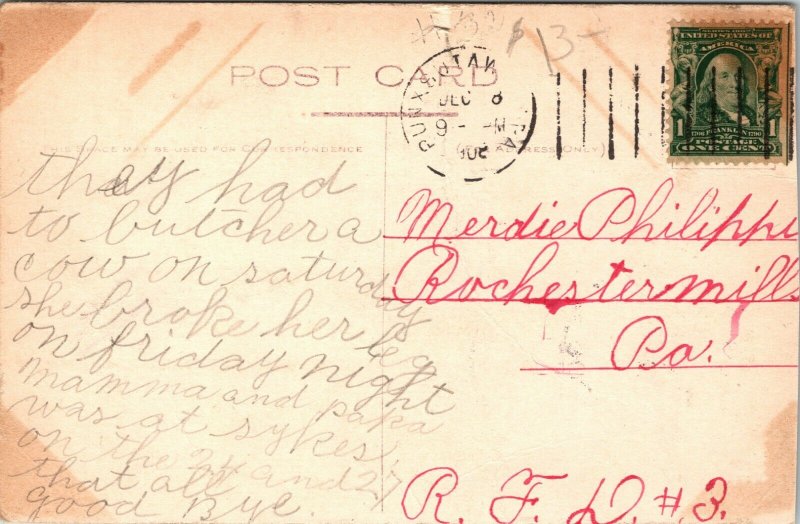 $ 13
POST CARD
PUNXSUTAWNEY PA.
DEC 8
9- M
1908
SERIES 1902
UNITED STATES OF
AMERICA
1706 FRANKLIN 1790
POSTAGE
1 ONE CENT 1
THIS SPACE MAY BE USED FOR CORRESPONDENCE
ADDRESS ONLY)
they had
to butcher a
cow on saturday
she broke her leg
on friday night
mamma and papa
was at sykes
on the 26 and 27
that all
good Bye.
Merdie Philippi
Rochestermills
Pa.
R. F. D. #3.